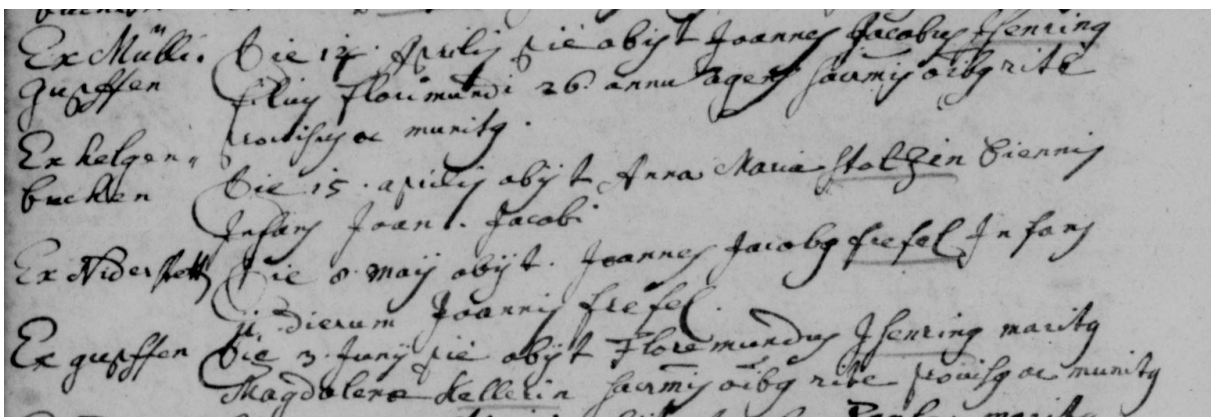 Ex Mülli. Die 14. Aprilis pie obijt Joannes Jacobus Isenring
gupffen filius Florimundi 26. annu agens sacrmis oibq rite
provisus ac munitq.
Ex helgen„
buchen Die 15. aprilis obijt Anna Maria Stolzin biennis
Infans Joan. Jacobi
Ex Nider Die 8. maij obijt. Joannes Jacobq frefel Infans
11. dierum Joannis frefel.
Ex gupffen Die 3. Junij pie obijt Floremundus Isenring maritq
Magdalena Kellerin sacrmis oibq rite provisq ac munitq